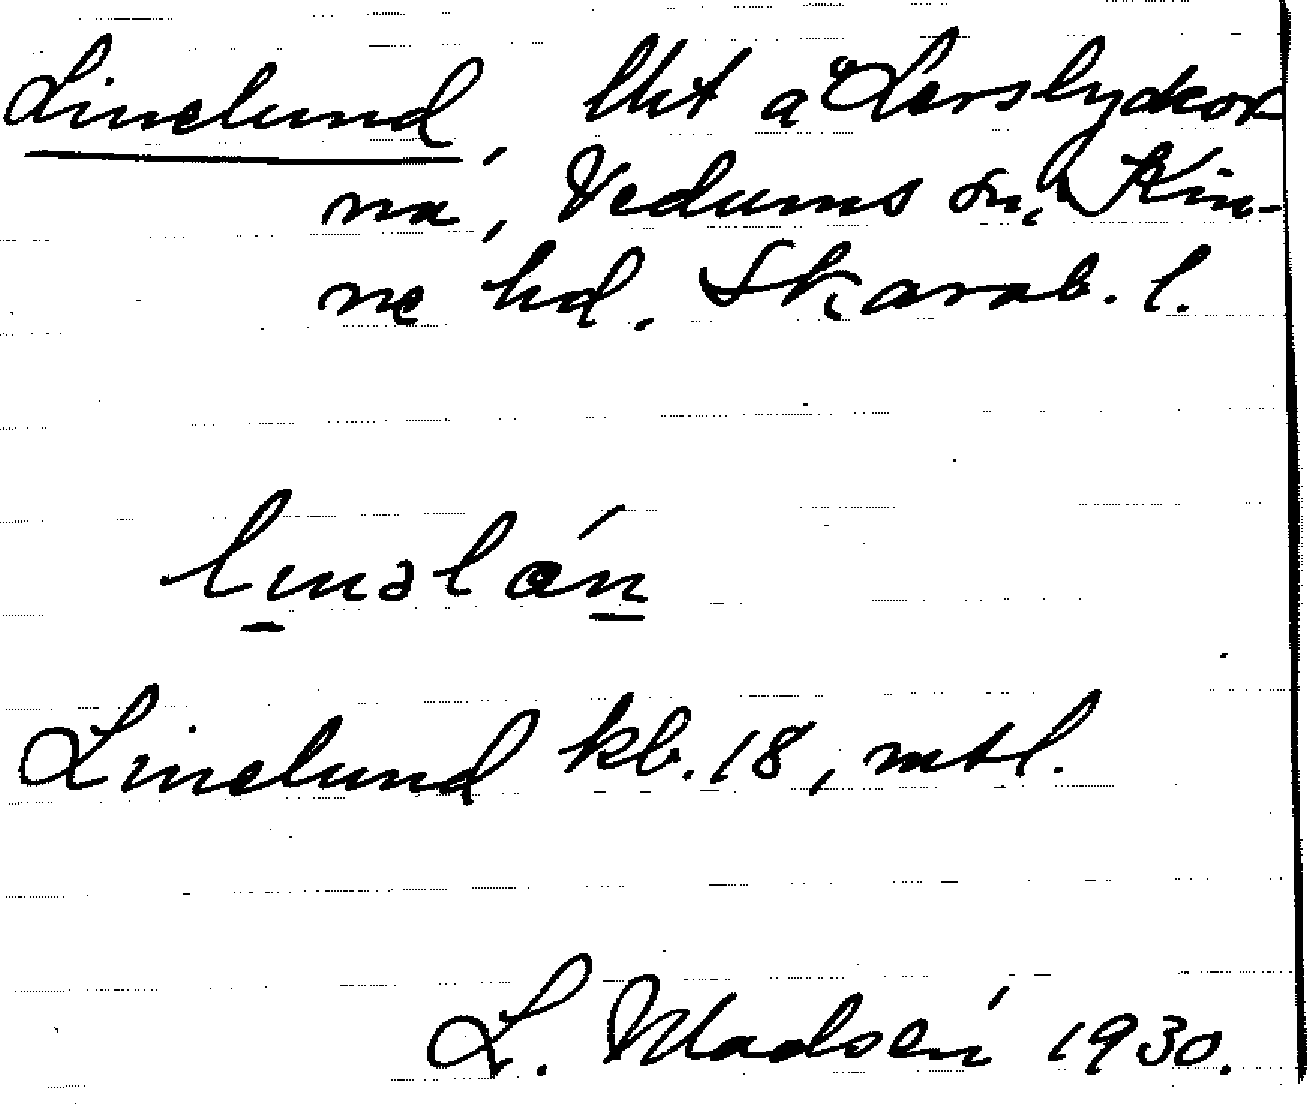 Linelund, lht å Lerslyckor-
na, Vedums sn, Kin-
ne hd. Skarab. l.
linəlán
Linelund kb. 18, mtl.
L. Madsén 1930.